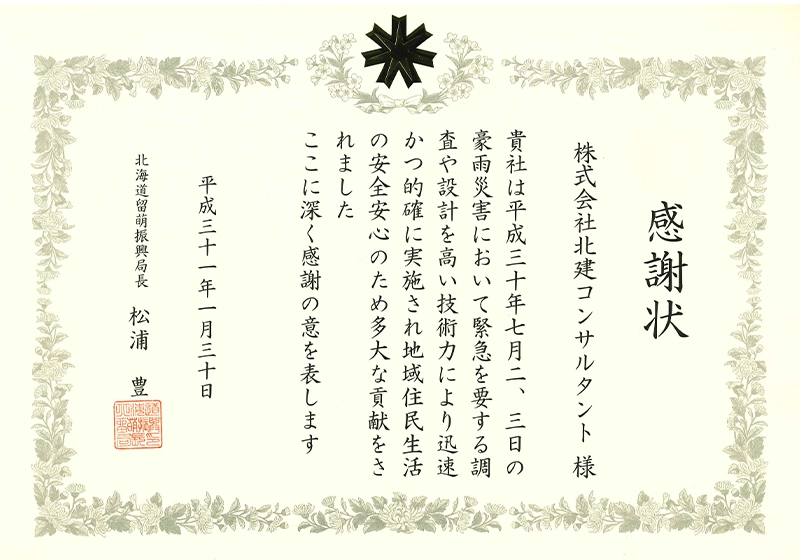 感謝状
株式会社北建コンサルタント 様
貴社は平成三十年七月二、三日の
豪雨災害において緊急を要する調
査や設計を高い技術力により迅速
かつ的確に実施され地域住民生活
の安全安心のため多大な貢献をさ
れました
ここに深く感謝の意を表します
平成三十一年一月三十日
北海道留萌振興局長 松浦 豊